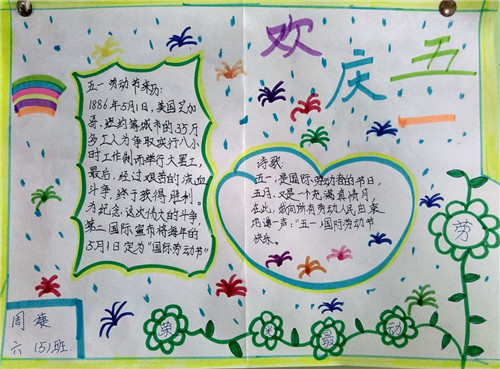 欢庆五一
五一劳动节来历:
1886年5月1日,美国芝加
哥、纽约等城市的35万
多工人为争取实行八小
时工作制而举行大罢工,
最后,经过艰苦的流血
斗争,终于获得胜利。
为纪念这次伟大的斗争
第二国际宣布将每年的
5月1日定为“国际劳动节”
诗歌:
五一,是国际劳动者的节日,
五月,又是一个充满真情月,
在此,我向所有劳动人民由衷
地道一声:“五一”国际劳动节
快乐。
劳
动
最
光
荣
周
六(5)班